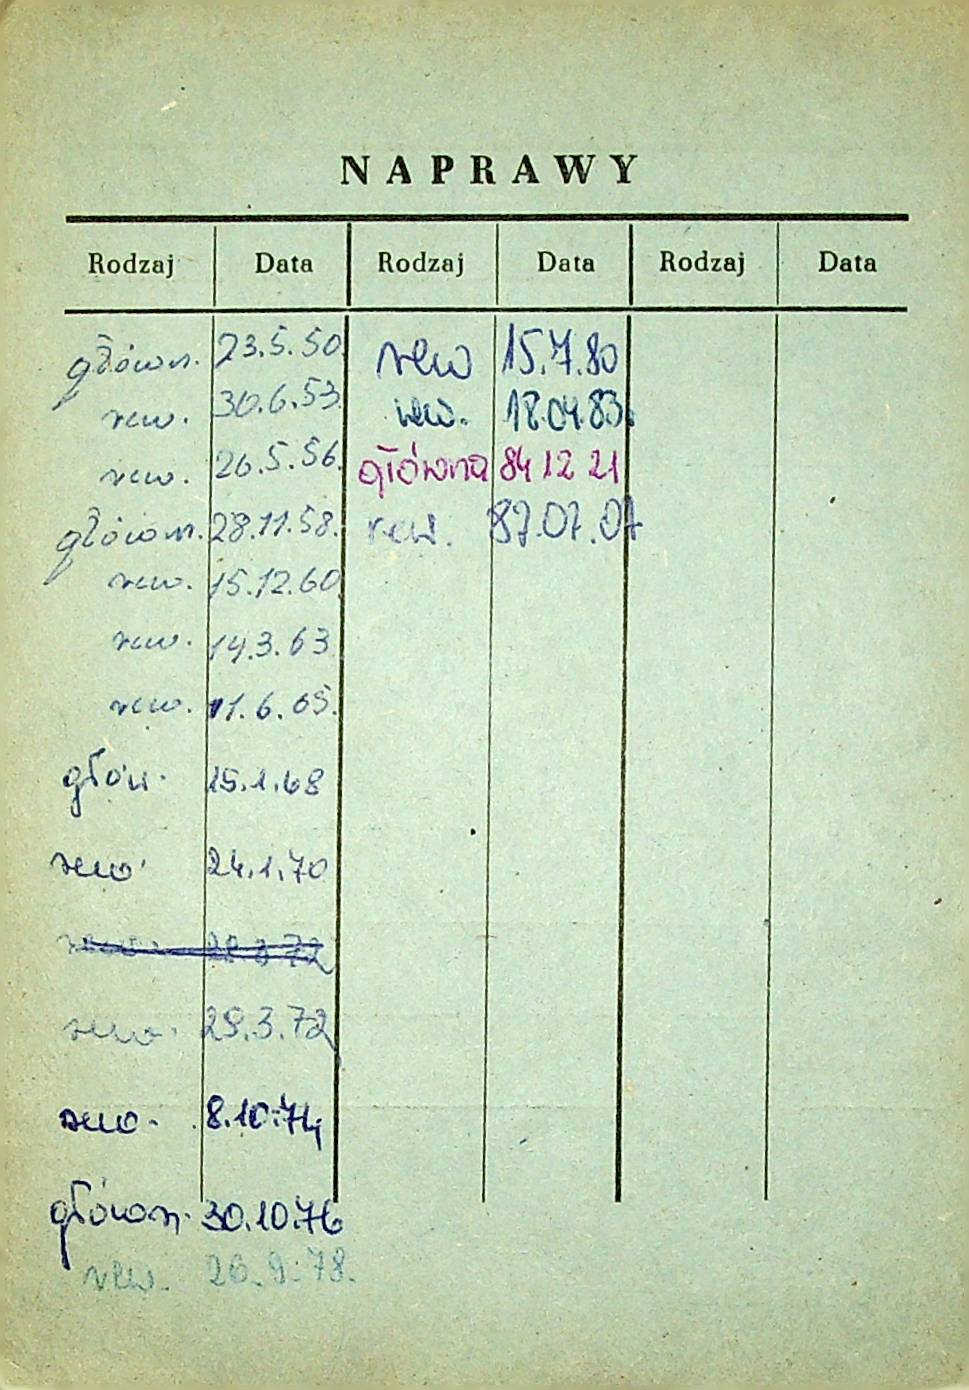 NAPRAWY
Rodzaj Data Rodzaj Data Rodzaj Data
główn. 23.5.50
rew. 30.6.53.
rew. 26.5.56.
główn. 28.11.58.
rew. 15.12.60
rew. 14.3.63
rew. 11.6.65.
głów. 15.1.68
rew. 24.1.70
rew. 29.3.72
rew. 29.3.72
rew. 8.10.74
główn. 30.10.76
rew. 26.9.78.
rew 15.7.80
rew. 18.04.83.
główna 84 12 21
rew. 87.07.07